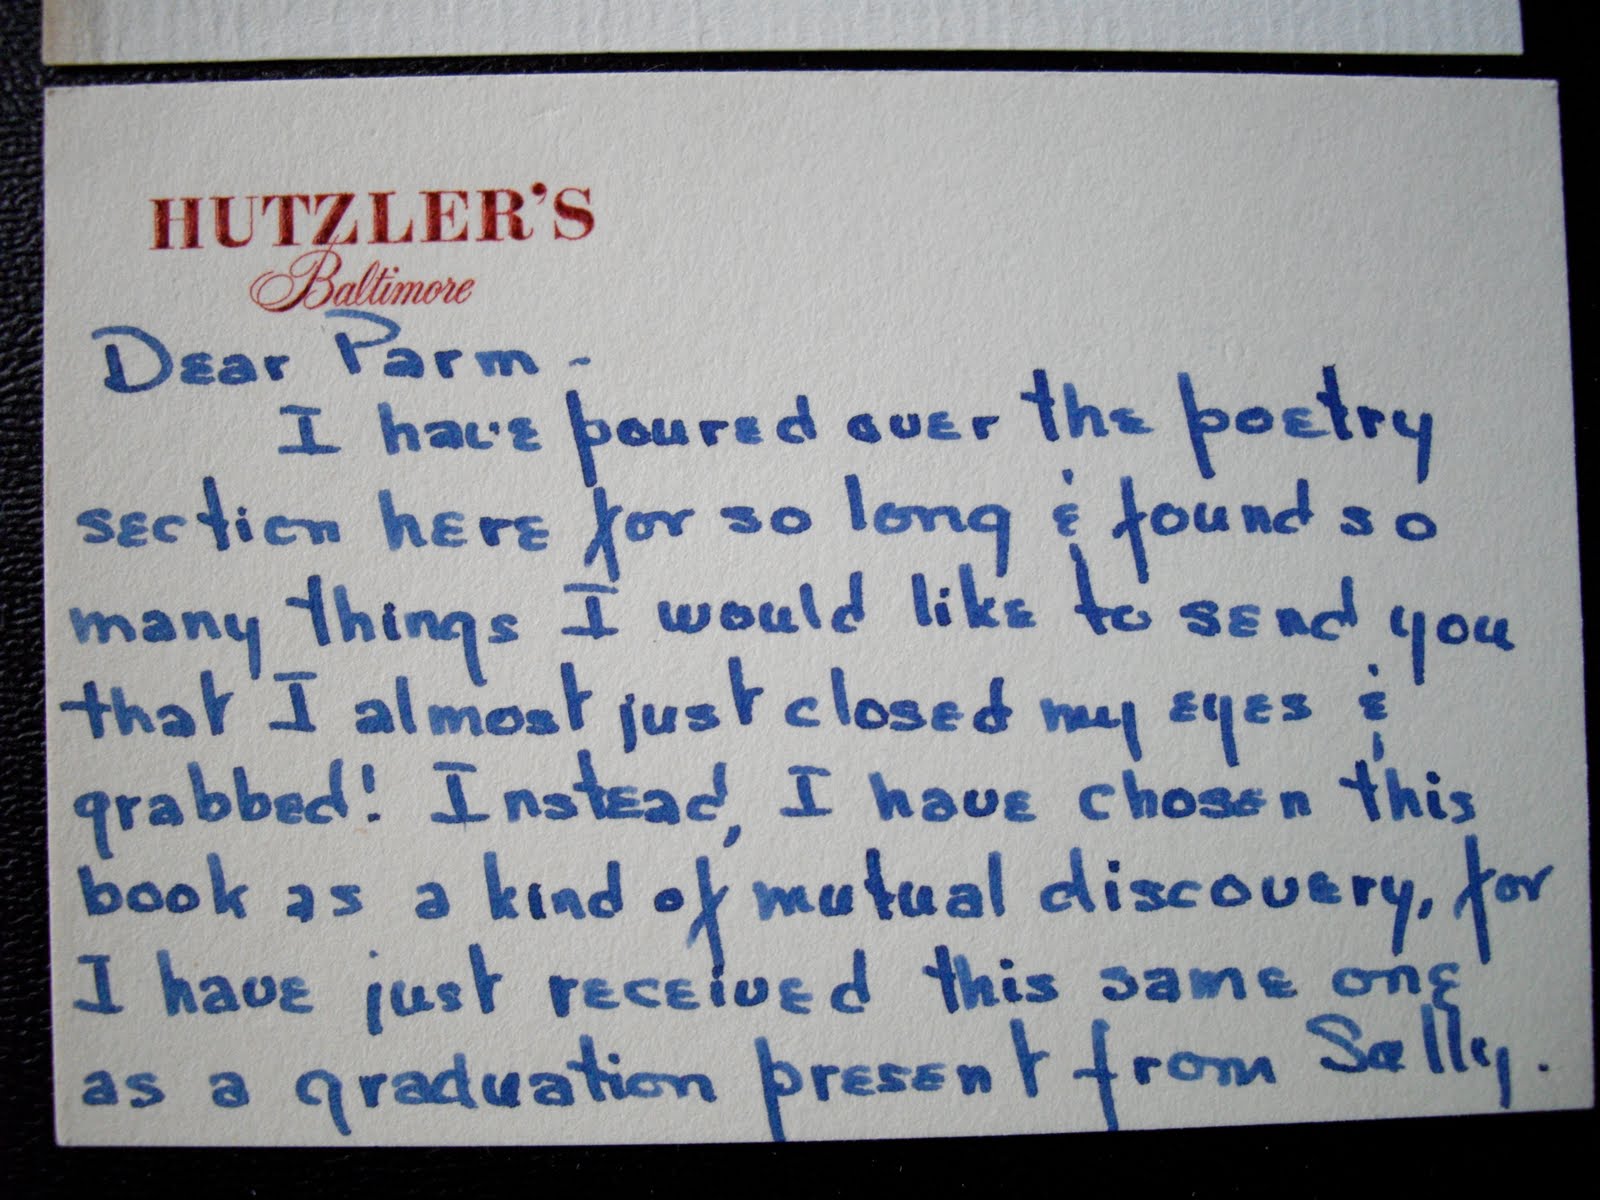 HUTZLER'S
Baltimore
Dear Parm -
I have poured over the poetry
section here for so long & found so
many things I would like to send you
that I almost just closed my eyes &
grabbed! Instead, I have chosen this
book as a kind of mutual discovery, for
I have just received this same one
as a graduation present from Sally.